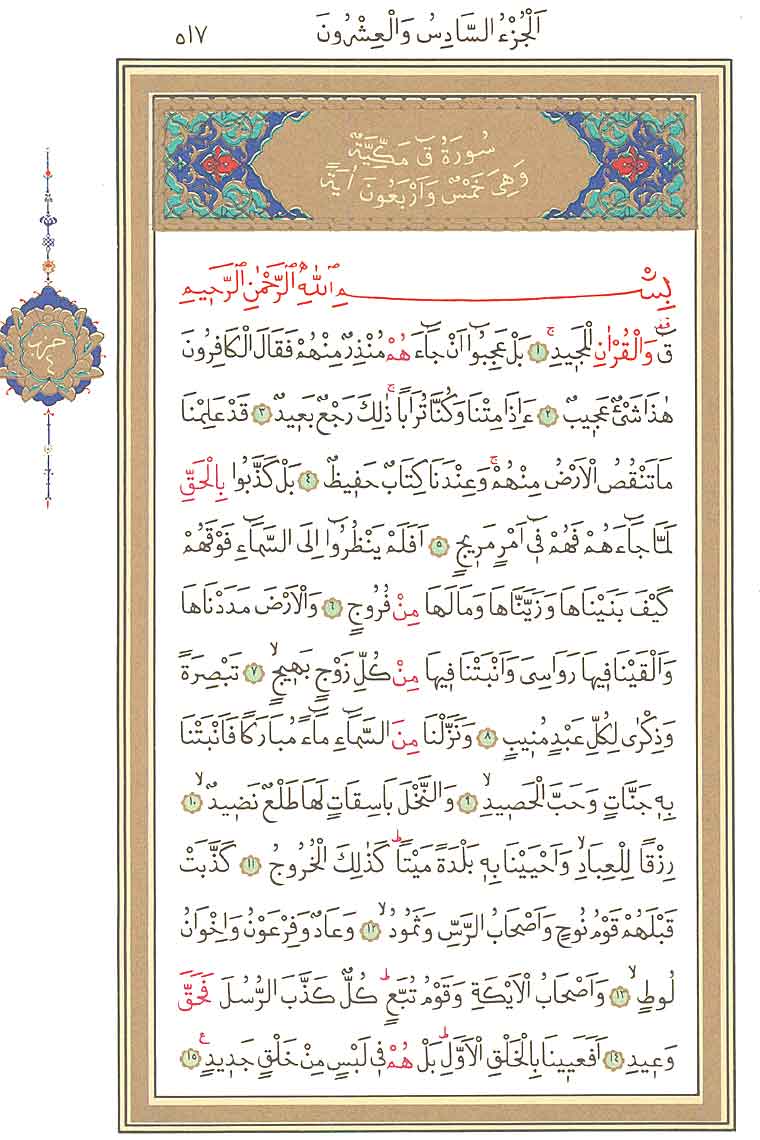 اَلْجُزْءُ السَّادِسُ وَالْعِشْرُونَ
٥١٧
سُورَةُ قٓ مَكِّيَّةٌ
وَهِيَ خَمْسٌ وَاَرْبَعُونَ اٰيَةً
بِسْمِ اللّٰهِ الرَّحْمٰنِ الرَّحِيمِ
قٓ وَالْقُرْاٰنِ الْمَجِيدِۚ ﴿١﴾ بَلْ عَجِبُٓوا اَنْ جَٓاءَهُمْ مُنْذِرٌ مِنْهُمْ فَقَالَ الْكَافِرُونَ
حزب
٤
هٰذَا شَيْءٌ عَجِيبٌ ﴿٢﴾ ءَاِذَا مِتْنَا وَكُنَّا تُرَاباًۚ ذٰلِكَ رَجْعٌ بَعِيدٌ ﴿٣﴾ قَدْ عَلِمْنَا
مَا تَنْقُصُ الْاَرْضُ مِنْهُمْۚ وَعِنْدَنَا كِتَابٌ حَفِيظٌ ﴿٤﴾ بَلْ كَذَّبُوا بِالْحَقِّ
لَمَّا جَٓاءَهُمْ فَهُمْ فٓي اَمْرٍ مَرِيجٍ ﴿٥﴾ اَفَلَمْ يَنْظُرُٓوا اِلَى السَّمَٓاءِ فَوْقَهُمْ
كَيْفَ بَنَيْنَاهَا وَزَيَّنَّاهَا وَمَا لَهَا مِنْ فُرُوجٍ ﴿٦﴾ وَالْاَرْضَ مَدَدْنَاهَا
وَاَلْقَيْنَا فِيهَا رَوَاسِيَ وَاَنْبَتْنَا فِيهَا مِنْ كُلِّ زَوْجٍ بَهِيجٍۙ ﴿٧﴾ تَبْصِرَةً
وَذِكْرٰى لِكُلِّ عَبْدٍ مُنِيبٍ ﴿٨﴾ وَنَزَّلْنَا مِنَ السَّمَٓاءِ مَٓاءً مُبَارَكاً فَاَنْبَتْنَا
بِهٖ جَنَّاتٍ وَحَبَّ الْحَصِيدِۙ ﴿٩﴾ وَالنَّخْلَ بَاسِقَاتٍ لَهَا طَلْعٌ نَضِيدٌۙ ﴿١٠﴾
رِزْقًا لِلْعِبَادِۙ وَاَحْيَيْنَا بِهٖ بَلْدَةً مَيْتاًۜ كَذٰلِكَ الْخُرُوجُ ﴿١١﴾ كَذَّبَتْ
قَبْلَهُمْ قَوْمُ نُوحٍ وَاَصْحَابُ الرَّسِّ وَثَمُودُۙ ﴿١٢﴾ وَعَادٌ وَفِرْعَوْنُ وَاِخْوَانُ
لُوطٍۙ ﴿١٣﴾ وَاَصْحَابُ الْاَيْكَةِ وَقَوْمُ تُبَّعٍۜ كُلٌّ كَذَّبَ الرُّسُلَ فَحَقَّ
وَعِيدِ ﴿١٤﴾ اَفَعَيِينَا بِالْخَلْقِ الْاَوَّلِۜ بَلْ هُمْ فِي لَبْسٍ مِنْ خَلْقٍ جَدِيدٍ۟ ﴿١٥﴾